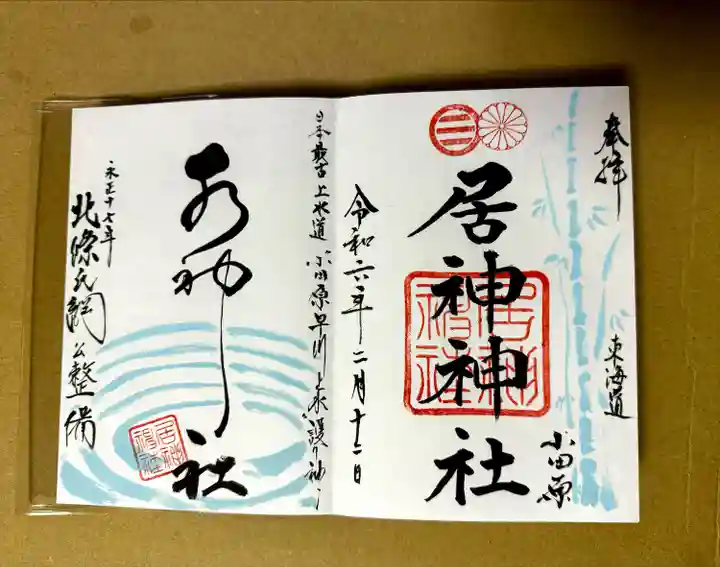 奉拝
東海道
小田原
居神神社
居神神社
令和六年二月十二日
日本最古上水道 小田原早川上水護り神
水神社
居神神社
永正十七年
北條氏綱公整備